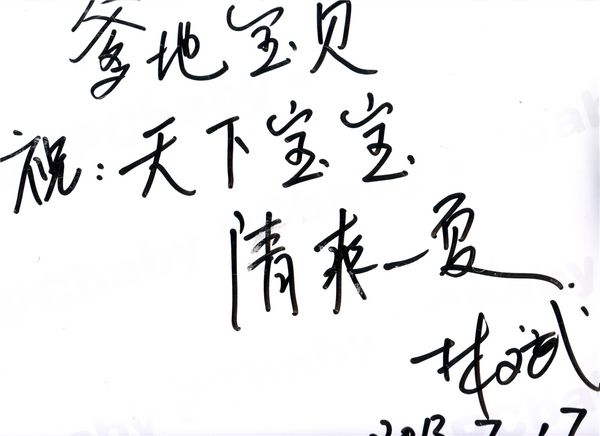 爹地宝贝
祝:天下宝宝
清爽一夏.
林斌
2013.7.17